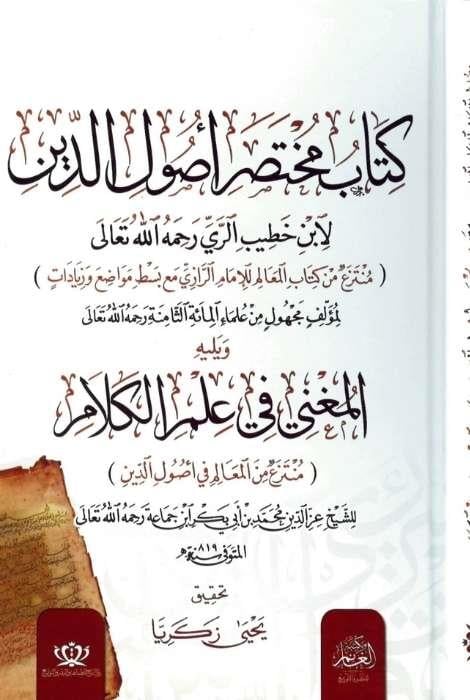 كِتَابُ مُخْتَصَر أُصُول الدِّين
لِابْنِ خَطِيبِ الرَّيِّ رَحِمَهُ اللهُ تَعَالَى
( مُنْتَزَعٌ مِنْ كِتَابِ المَعَالِمِ لِلإِمَامِ الرَّازِيِّ مَعَ بَسْطِ مَوَاضِعَ وَزِيَادَاتٍ )
لِمُؤَلِّفٍ مَجْهُولٍ مِنْ عُلَمَاءِ المِائَةِ الثَّامِنَةِ رَحِمَهُ اللهُ تَعَالَى
وَيَلِيهِ
المُغْنِي فِي عِلْمِ الكَلَامِ
( مُنْتَزَعٌ مِنَ المَعَالِمِ فِي أُصُولِ الدِّينِ )
لِلشَّيْخِ عِزِّ الدِّينِ مُحَمَّد بْنِ أَبِي بَكْرِ ابْنِ جَمَاعَة رَحِمَهُ اللهُ تَعَالَى
المُتَوَفَّى سَنَة ٨١٩ هـ
تحقيق
يَحْيَى زَكَرِيَّا
مكتبة الغانم
للنشر والتوزيع